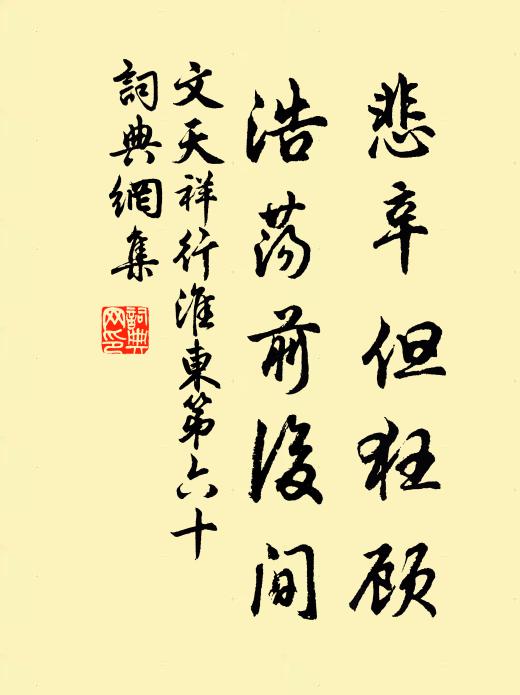 悲辛但狂顾
浩荡前後间
文天祥行淮東第六十
詞典網集
詞典
网印